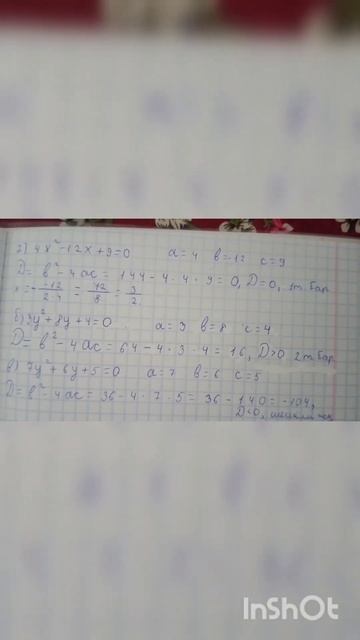 4x² - 12x + 9 = 0   a = 4   b = -12   c = 9
D = b² - 4ac = 144 - 4 · 4 · 9 = 0, D = 0, 1т. бар
x = - -12/2·4 = 12/8 = 3/2
б) 3y² + 8y + 4 = 0   a = 3   b = 8   c = 4
D = b² - 4ac = 64 - 4 · 3 · 4 = 16, D > 0 2т. бар
в) 7y² + 6y + 5 = 0   a = 7   b = 6   c = 5
D = b² - 4ac = 36 - 4 · 7 · 5 = 36 - 140 = -104,
D < 0,
InShOt